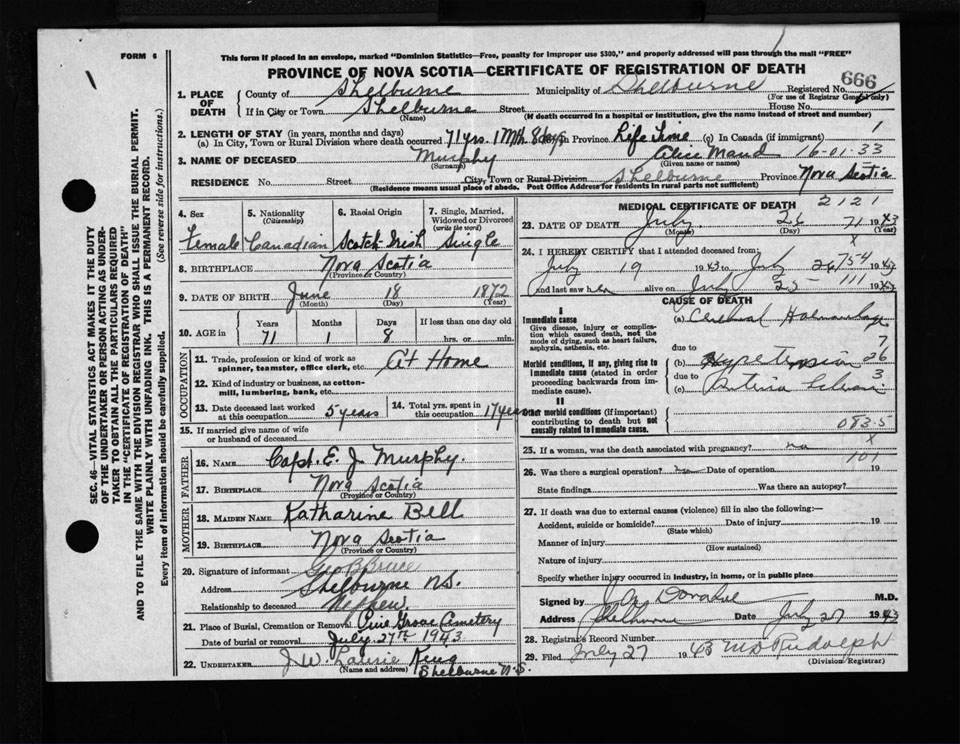 FORM 6
This form if placed in an envelope, marked "Dominion Statistics—Free, penalty for improper use $300," and properly addressed will pass through the mail "FREE"
PROVINCE OF NOVA SCOTIA—CERTIFICATE OF REGISTRATION OF DEATH
666
1. PLACE OF DEATH
County of Shelburne Municipality of Shelburne Registered No.
(For use of Registrar General only)
If in City or Town Shelburne Street House No.
(Name) (If death occurred in a hospital or institution, give the name instead of street and number)
2. LENGTH OF STAY (in years, months and days)
(a) In City, Town or Rural Division where death occurred 71 yrs. 1 Mth 8 days In Province Life Time (c) In Canada (if immigrant) 1
3. NAME OF DECEASED Murphy Alice Maud 16-01-33
(Surname) (Given name or names)
RESIDENCE No. Street City, Town or Rural Division Shelburne Province Nova Scotia
(Residence means usual place of abode. Post Office Address for residents in rural parts not sufficient)
4. Sex
Female
5. Nationality
(Citizenship)
Canadian
6. Racial Origin
Scotch Irish
7. Single, Married, Widowed or Divorced
(write the word)
Single
8. BIRTHPLACE Nova Scotia
(Province or Country)
9. DATE OF BIRTH June 18 1872
(Month) (Day) (Year)
10. AGE in
Years Months Days If less than one day old
71 1 8 hrs. or min.
OCCUPATION
11. Trade, profession or kind of work as spinner, teamster, office clerk, etc. At Home
12. Kind of industry or business, as cotton-mill, lumbering, bank, etc.
13. Date deceased last worked at this occupation 5 years
14. Total yrs. spent in this occupation 17 years
15. If married give name of wife or husband of deceased
FATHER
16. NAME Capt. E. J. Murphy.
17. BIRTHPLACE Nova Scotia
(Province or Country)
MOTHER
18. MAIDEN NAME Katharine Bell
19. BIRTHPLACE Nova Scotia
(Province or Country)
20. Signature of informant Geo B Bruce
Address Shelburne N.S.
Relationship to deceased Nephew.
21. Place of Burial, Cremation or Removal Pine Grove Cemetery
Date of burial or removal July 27th 1943
22. UNDERTAKER J W. Laurie King
(Name and address) Shelburne N.S.
MEDICAL CERTIFICATE OF DEATH 2121
23. DATE OF DEATH July 26 71 1943
(Month) (Day) (Year)
x
24. I HEREBY CERTIFY that I attended deceased from:
July 19 1943 to July 26 754 1943
and last saw her alive on July 25 111 1943
CAUSE OF DEATH
I
Immediate cause
Give disease, injury or complication which caused death, not the mode of dying, such as heart failure, asphyxia, asthenia, etc.
(a) Cerebral
due to 7
Morbid conditions, if any, giving rise to immediate cause (stated in order proceeding backwards from immediate cause).
(b) Hypertension 26
due to 3
(c)
II
Other morbid conditions (if important) contributing to death but not causally related to immediate cause.
083.5
x
25. If a woman, was the death associated with pregnancy? no
101
26. Was there a surgical operation? no Date of operation 19
State findings Was there an autopsy?
27. If death was due to external causes (violence) fill in also the following:—
Accident, suicide or homicide? Date of injury 19
(State which)
Manner of injury
(How sustained)
Nature of injury
Specify whether injury occurred in industry, in home, or in public place
Signed by Donahue M.D.
Address Shelburne Date July 27 1943
28. Registrar's Record Number
29. Filed July 27 1943 Rudolph
(Division Registrar)
SEC. 46—VITAL STATISTICS ACT MAKES IT THE DUTY
OF THE UNDERTAKER OR PERSON ACTING AS UNDER-
TAKER TO OBTAIN ALL THE PARTICULARS REQUIRED
IN THE "CERTIFICATE OF REGISTRATION OF DEATH"
AND TO FILE THE SAME WITH THE DIVISION REGISTRAR WHO SHALL ISSUE THE BURIAL PERMIT.
WRITE PLAINLY WITH UNFADING INK. THIS IS A PERMANENT RECORD.
Every item of information should be carefully supplied. (See reverse side for instructions.)